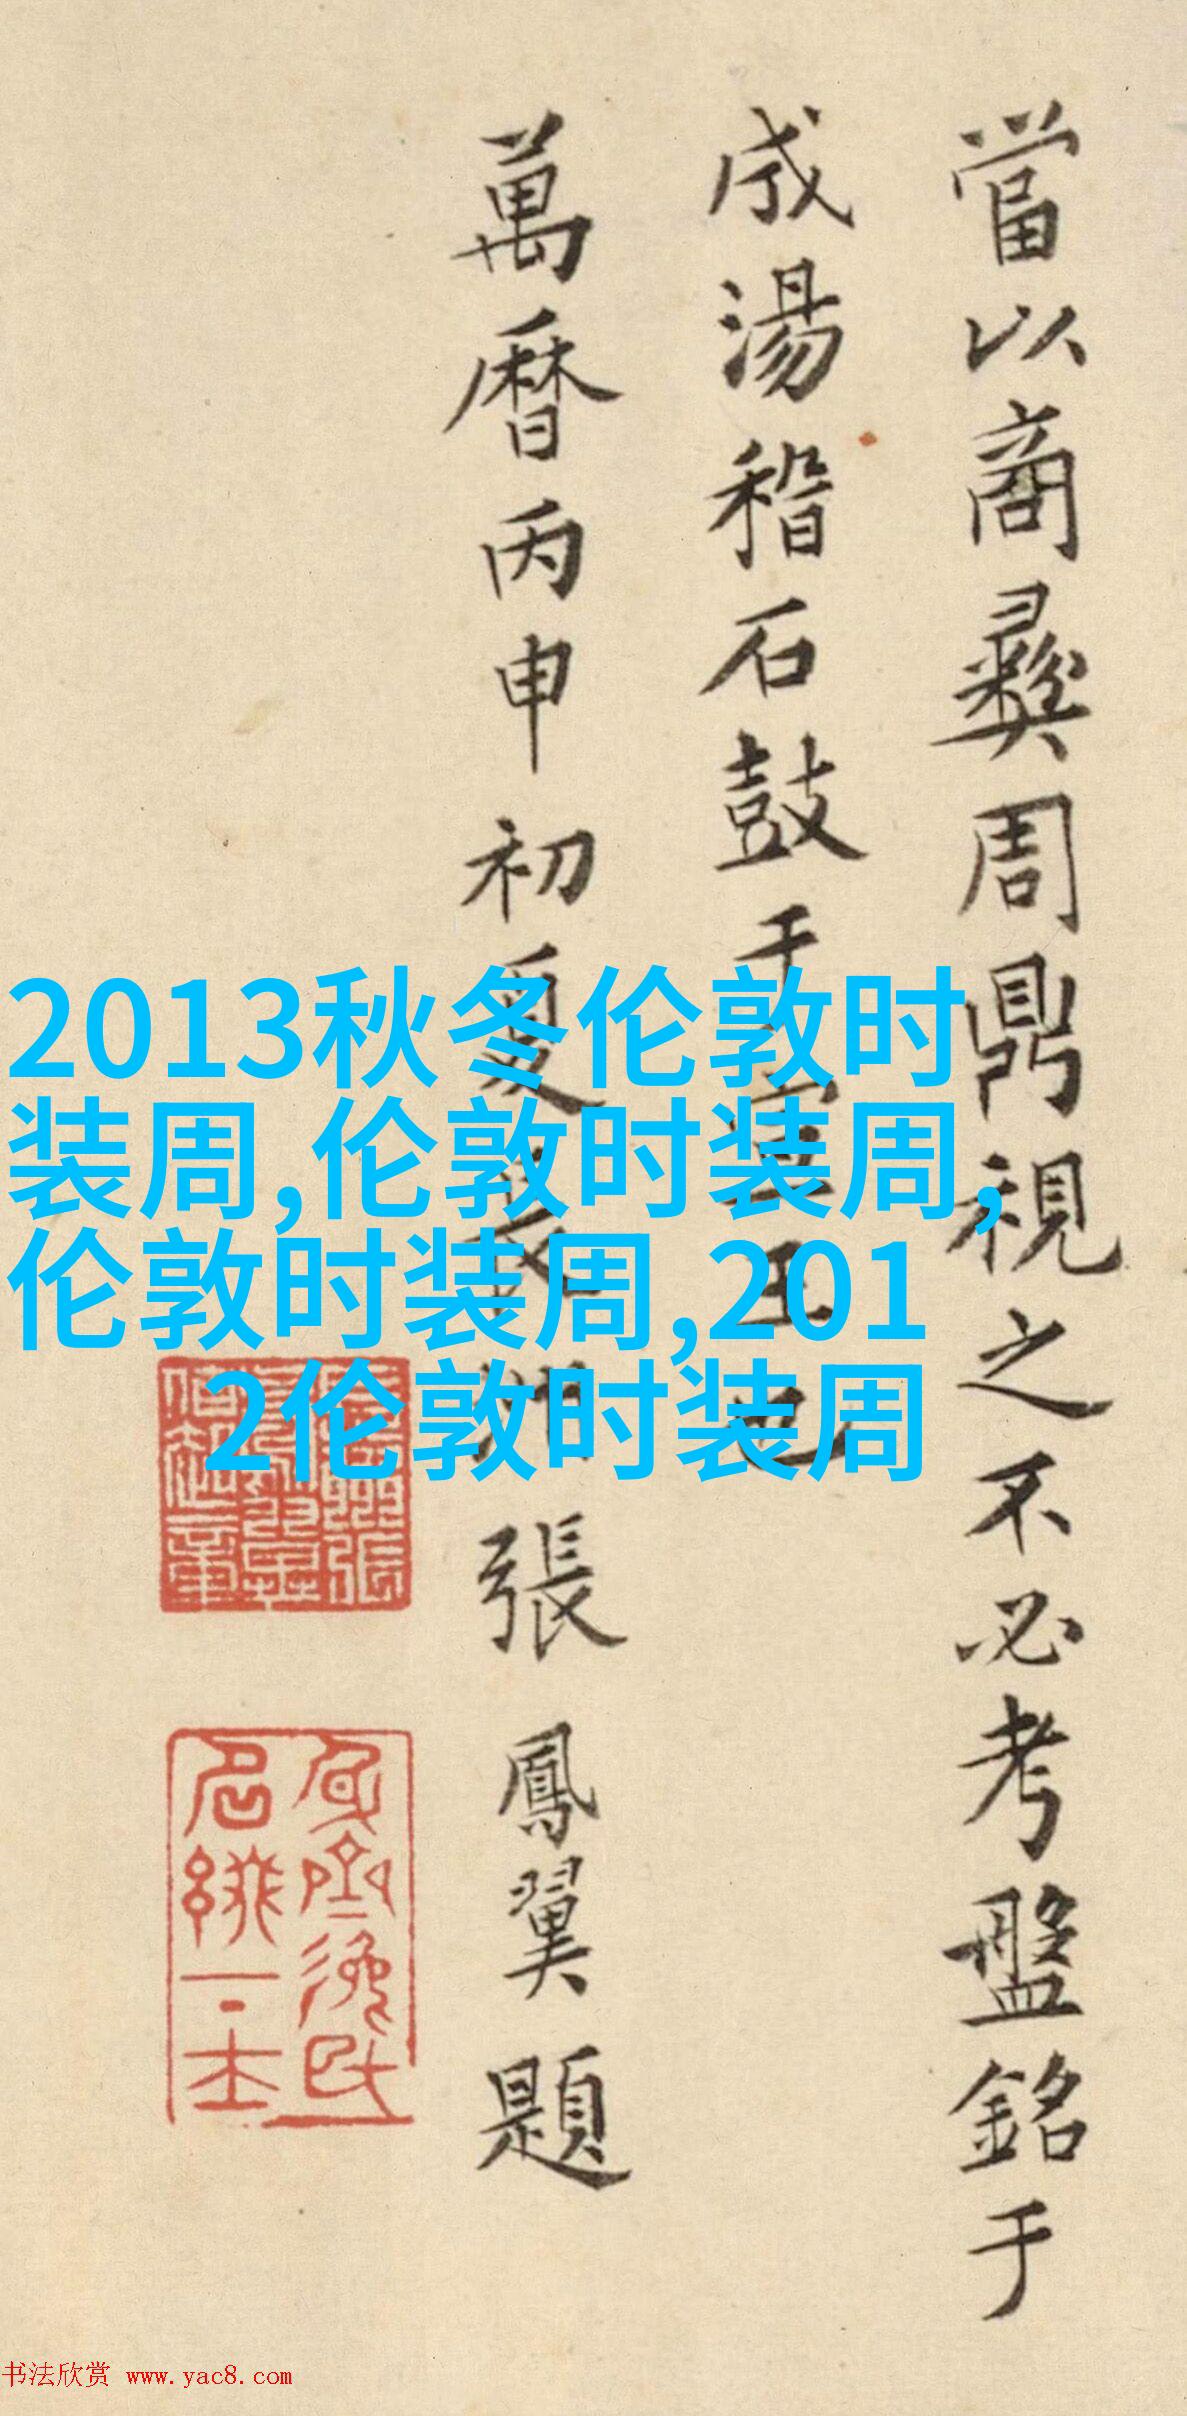 當以商彝周鼎視之不必考盤銘于
成湯稽石鼓于宣王也
萬曆丙申初夏長洲張鳳翼題
2013秋冬伦敦时
装周,伦敦时装周,
伦敦时装周,201
2伦敦时装周
书法欣赏 www.yac8.com